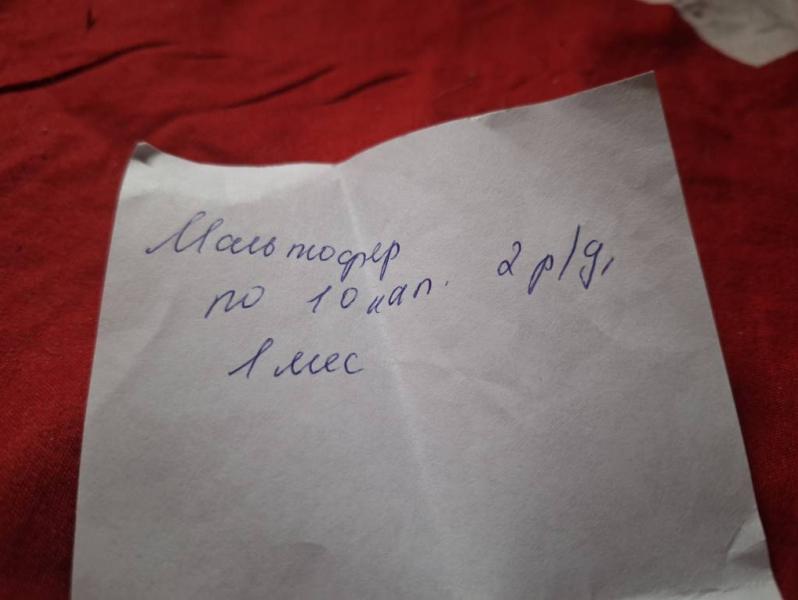 Мальтофер
по 10 кап. 2 р/д,
1 мес